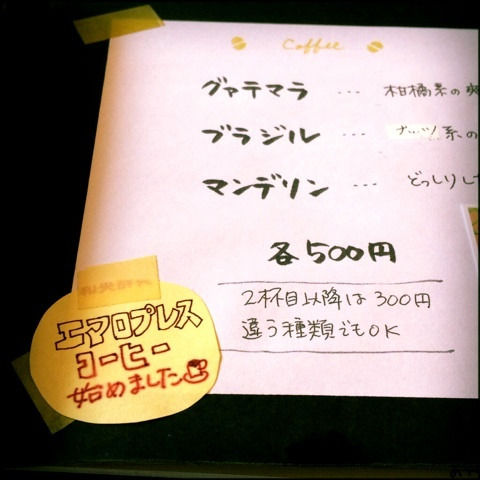 Coffee
グァテマラ … 柑橘系の爽
ブラジル … ナッツ系の
マンデリン … どっしりし
各500円
2杯目以降は300円
違う種類でもOK
エアロプレス
コーヒー
始めました